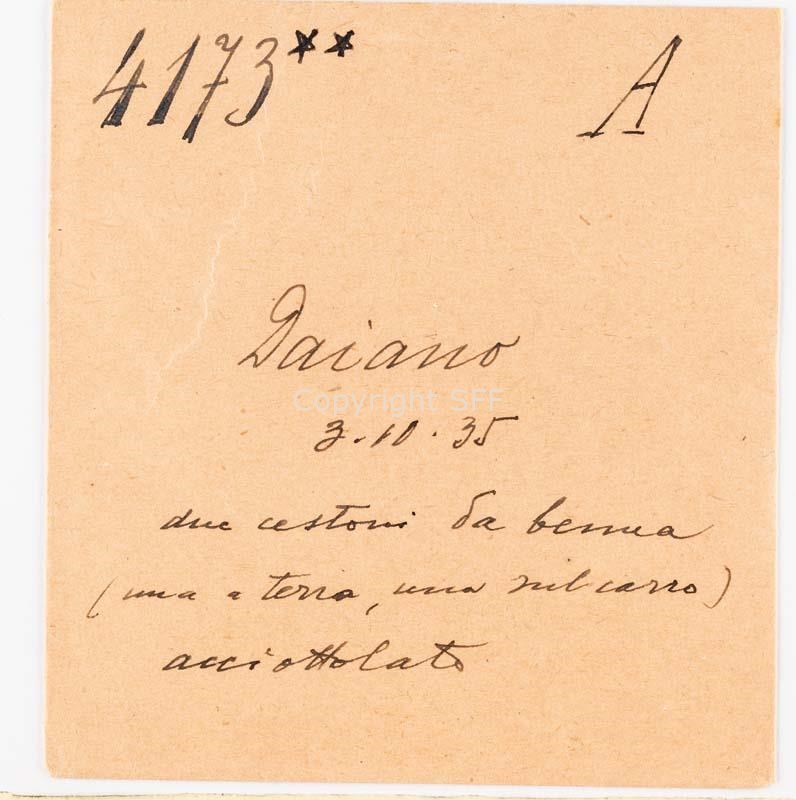 4173** A
Daiano
Copyright SFF
3.10.35
due cestoni da benna
(una a terra, una sul carro)
acciottolato